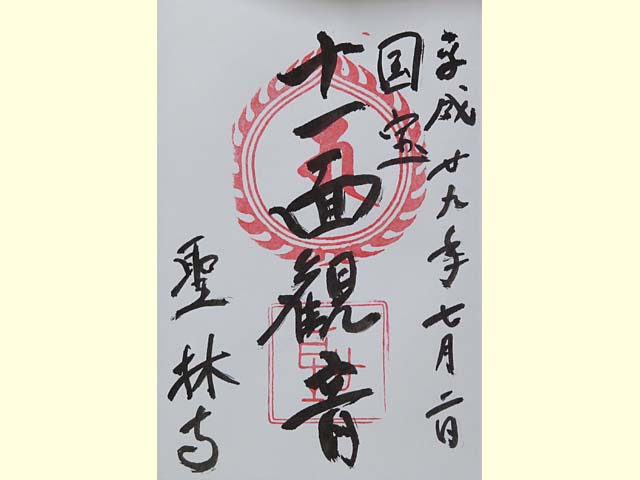 平成廿九年七月二日
国宝
十一面観音
聖林寺